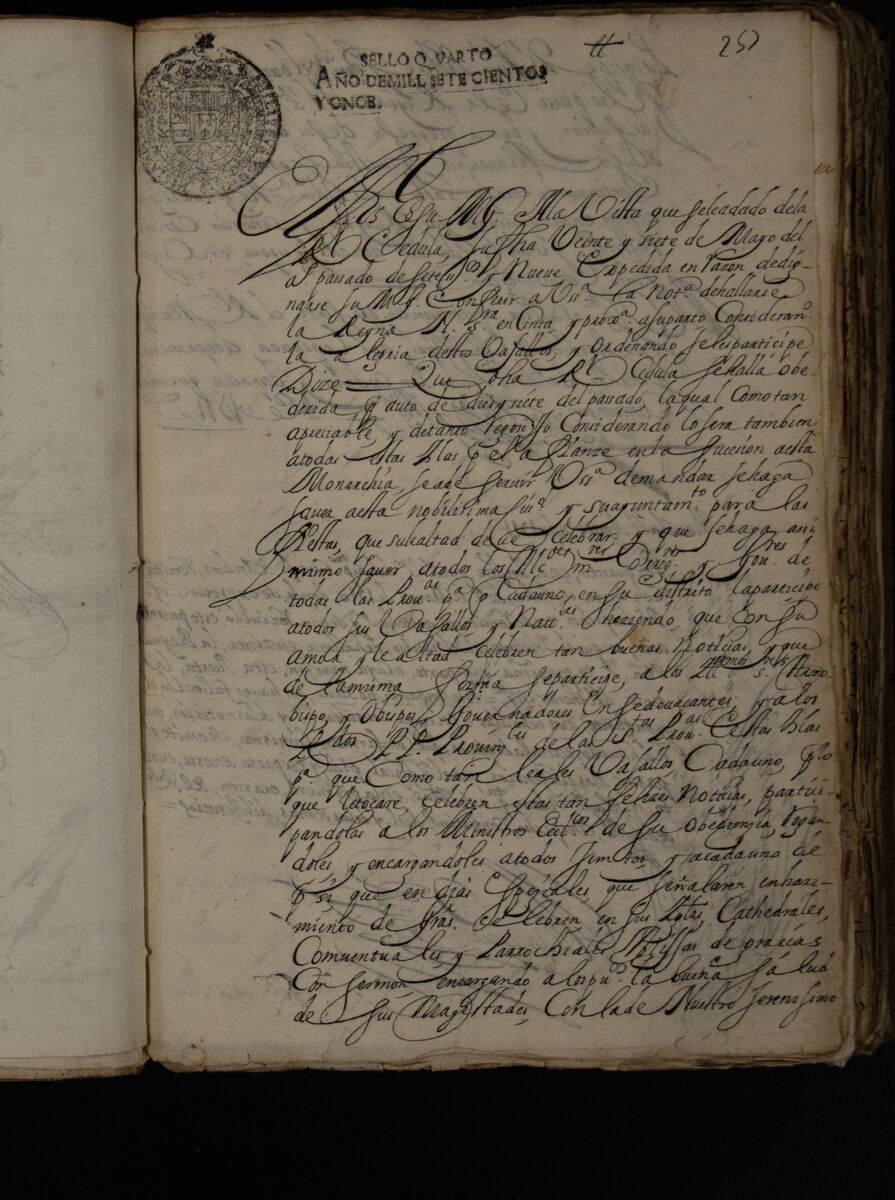 SELLO QVARTO
AÑO DE MILL SETECIENTOS
Y ONCE.
257
El fiscal de su Mg. A la Vista que se le a dado de la
Rl Cedula, su fha Veinte y siete de Mayo del
a.º passado de setesos. y Nueve Expedida en razon de dig-
narse su Mg. Conferir a Vssª. la notª. de hallarse
la Reyna N. Sra en Cinta, y proxª. a su parto Consideran.º
la alegria destos Vasallos, y ordenando se les participe
Dize = Que dha Rl Cedula se halla obe-
dezida pr auto de diez y siete del passado, la qual como tan
apreciable, y de tanto regosijo Considerando lo sera tambien
a todas estas Yslas pr el afianze en la sucesion desta
Monarchia, se a de servir Vssª. de mandar se haga
saver a esta nobilisima Ciud. y su ayuntamto para las
fiestas, que su lealtad deve celebrar, y que se haga asi
mismo saver a todos los Alcdes mres Correg.res y Gou.res de
todas las Prou.as pª. q Cada uno, en su distrito la participe
a todos sus Vasallos, y Natt.les haziendo, que con su
amor y lealtad celebren tan buenas noticias, y que
de la misma forma se participe, a los Yllmos Ses. Arzo-
bispo, y Obispos, Governadores en sedevacantes, y a los
RRdos PP. Prouinles de las Stas Prou.as destas Yslas
pª. que Como tan leales Vasallos Cada uno, pr lo
que le tocare, celebren estas tan felises noticias, partici-
pandolas a los Ministros Ecclcos de su obediencia, rogan-
doles, y encargandoles a todos juntos, y a cada uno de
pr si que en dias Espeziales, que señalaren en hazi-
miento de Gras. Celebren en sus Yglªs, Cathedrales,
Comuentuales y Parrochiales Missas de gracias
Con sermon encargando a los pu.s la buena salud
de sus Magestades, con la de Nuestro Serenisimo